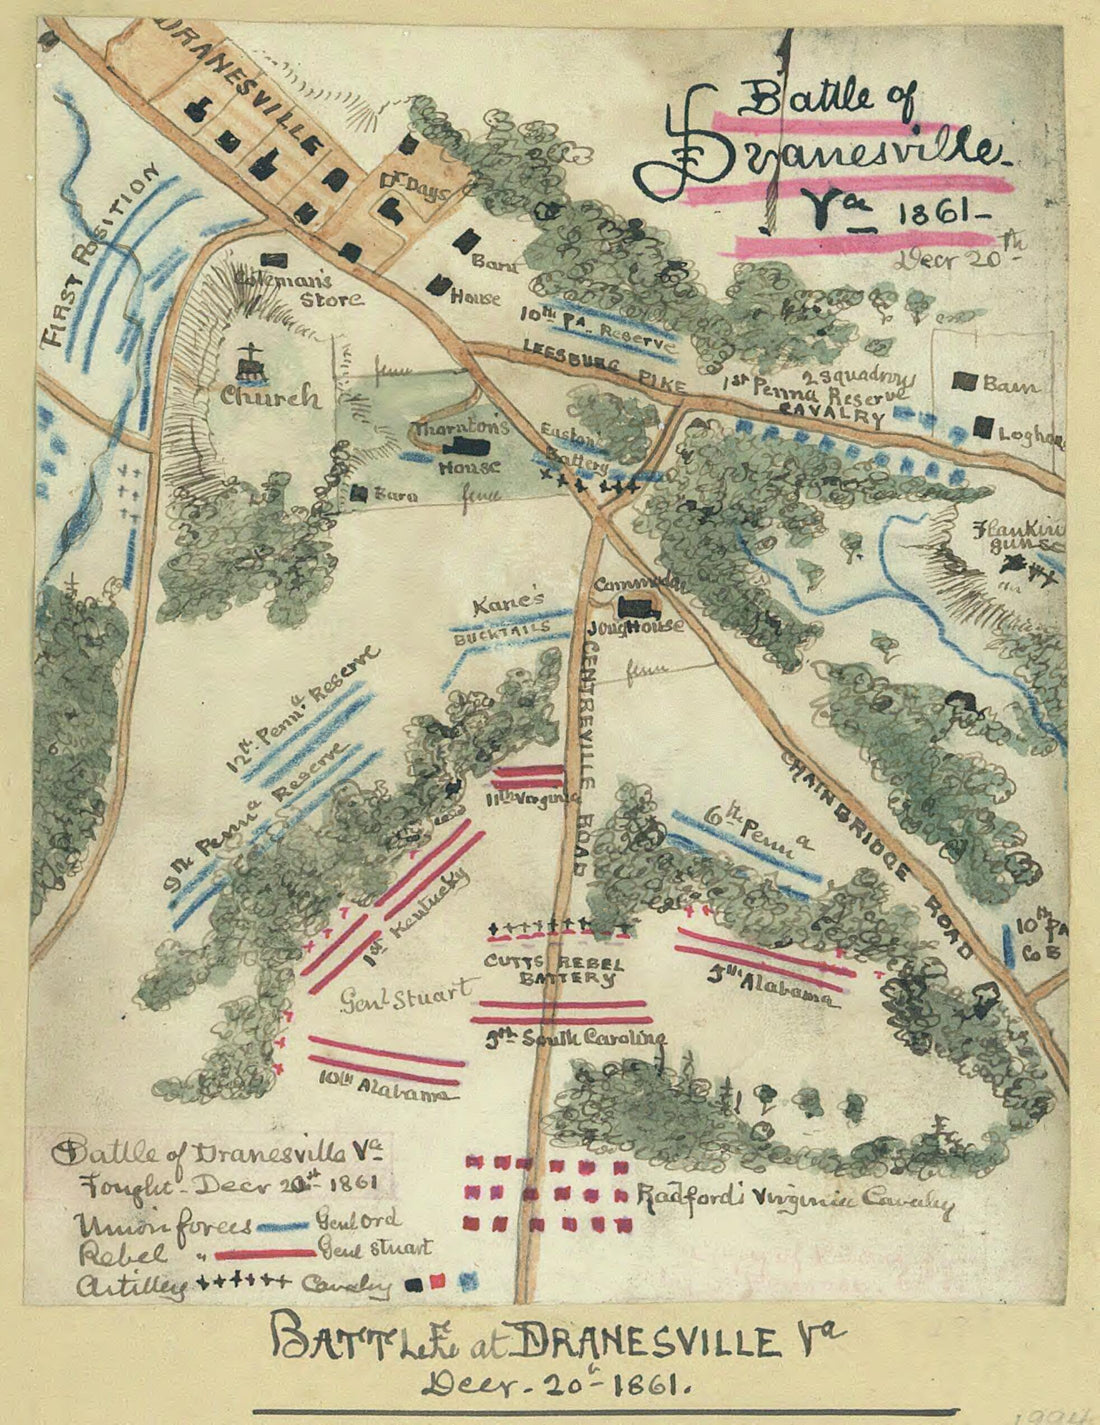 Battle of
Dranesville
Va 1861-
Decr 20th
DRANESVILLE
Dr Days
FIRST POSITION
Coleman's
Store
Barn
House
10th PA. Reserve
LEESBURG PIKE
2 squadrons
1st Penna Reserve
CAVALRY
Barn
Church
fence
Thornton's
House
Easton's
Battery
Barn
fence
Flanking
guns
Kane's
BUCKTAILS
House
fence
CENTREVILLE ROAD
12th Penna Reserve
9th Penna Reserve
11th Virginia
CHAINBRIDGE ROAD
6th Penna
1st Kentucky
10th PA
Co B
CUTTS REBEL
BATTERY
5th Alabama
Genl Stuart
5th South Carolina
10th Alabama
Battle of Dranesville Va
Fought - Decr 20th 1861
Union forces Genl Ord
Rebel " Genl Stuart
Artillery Cavalry
Radford's Virginia Cavalry
BATTLE at DRANESVILLE Va
Decr. 20th 1861.